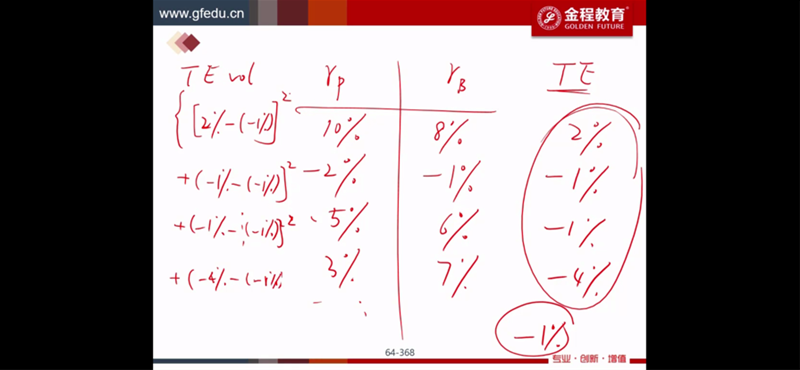 www.gfedu.cn
金程教育
GOLDEN FUTURE
TE vol r_P r_B TE
{[2%-(-1%)]² 10% 8% 2%
+(-1%-(-1%)]² -2% -1% -1%
+(-1%-(-1%)]² 5% 6% -1%
+(-4%-(-1%) 3% 7% -4%
-1%
64-368
专业·创新·增值